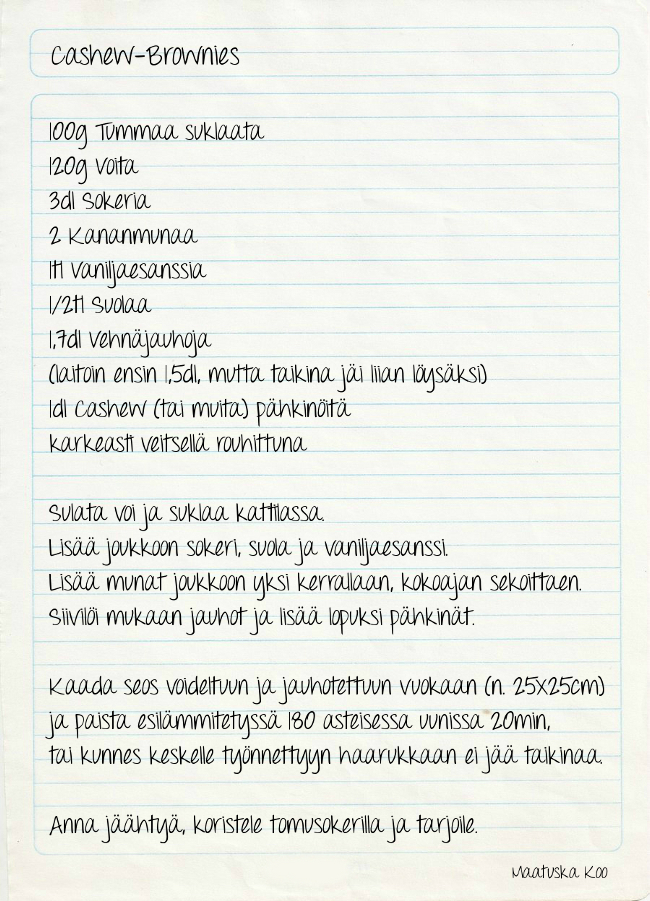 Cashew-Brownies
100g Tummaa suklaata
120g Voita
3dl Sokeria
2 Kananmunaa
1tl Vaniljaesanssia
1/2tl Suolaa
1,7dl Vehnäjauhoja
(laitoin ensin 1,5dl, mutta taikina jäi liian löysäksi)
1dl Cashew (tai muita) pähkinöitä
karkeasti veitsellä rouhittuna
Sulata voi ja suklaa kattilassa.
Lisää joukkoon sokeri, suola ja vaniljaesanssi.
Lisää munat joukkoon yksi kerrallaan, kokoajan sekoittaen.
Siivilöi mukaan jauhot ja lisää lopuksi pähkinät.
Kaada seos voideltuun ja jauhotettuun vuokaan (n. 25x25cm)
ja paista esilämmitetyssä 180 asteisessa uunissa 20min,
tai kunnes keskelle työnnettyyn haarukkaan ei jää taikinaa.
Anna jäähtyä, koristele tomusokerilla ja tarjoile.
Maatuska Koo